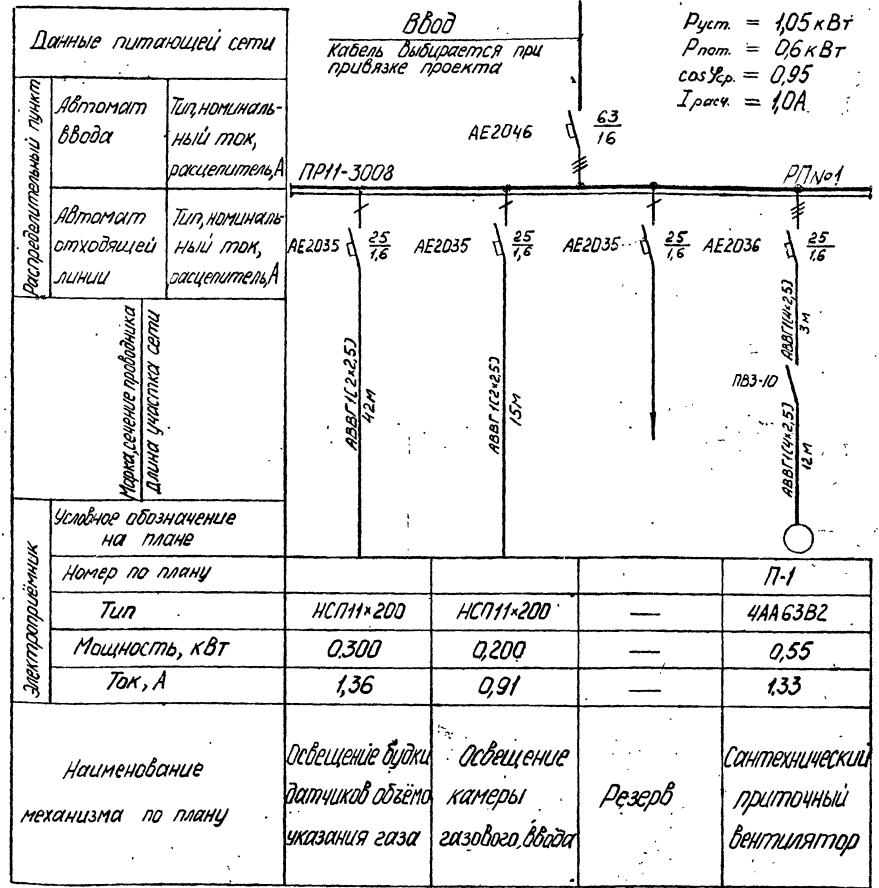 Данные питающей сети
Ввод
Кабель выбирается при
привязке проекта
Pуст. = 1,05 кВт
Pпот. = 0,6 кВт
cosφср. = 0,95
Iрасч. = 1,0А
Распределительный пункт
Автомат
ввода
Тип, номиналь-
ный ток,
расцепитель, А
АЕ2046
63
16
ПР11-3008
РП №1
Автомат
отходящей
линии
Тип, номиналь-
ный ток,
расцепитель, А
АЕ2035 25
1,6
АЕ2035 25
1,6
АЕ2035 25
1,6
АЕ2036 25
1,6
Марка, сечение проводника
Длина участка сети
АВВГ1(2×2,5)
42м
АВВГ1(2×2,5)
15м
АВВГ1(4×2,5)
3м
ПВ3-10
АВВГ1(4×2,5)
12м
Электроприёмник
Условное обозначение
на плане
Номер по плану П-1
Тип НСП11×200 НСП11×200 — 4АА63В2
Мощность, кВт 0,300 0,200 — 0,55
Ток, А 1,36 0,91 — 1,33
Наименование
механизма по плану
Освещение будки
датчиков объёмо
указания газа
Освещение
камеры
газового ввода
Резерв
Сантехнический
приточный
вентилятор